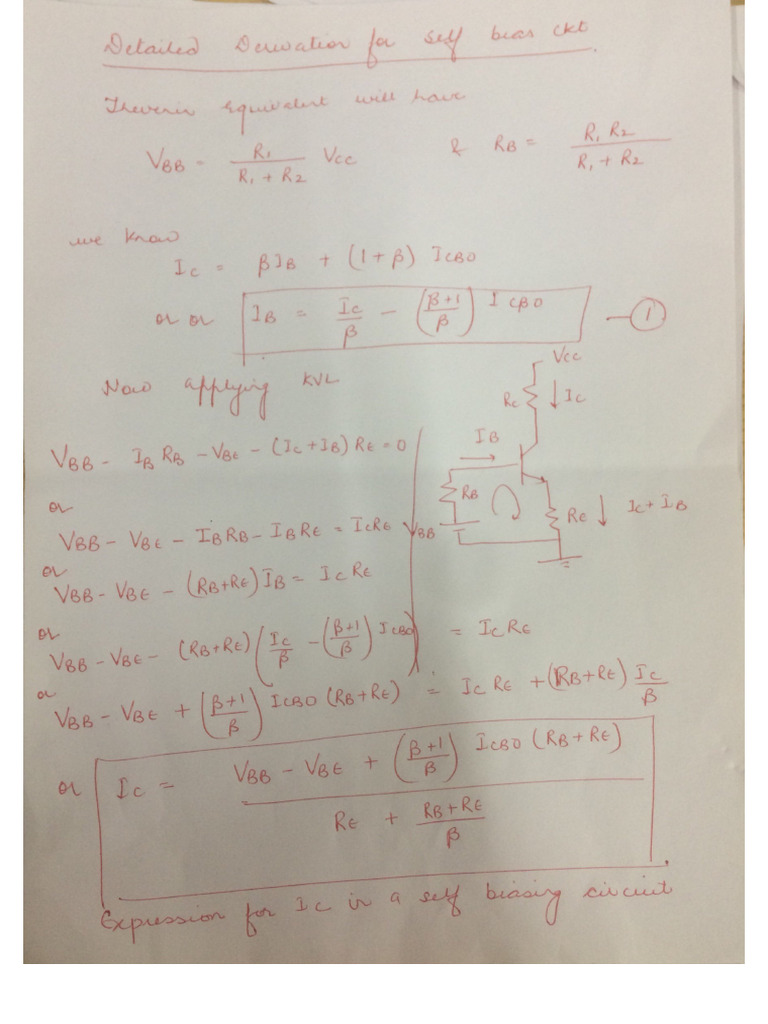 Detailed Derivation for self bias ckt.
Thevenin equivalent will have
V_BB = R₁/(R₁ + R₂) Vcc & R_B = R₁ R₂/(R₁ + R₂)
we know
I_C = βI_B + (1+β) I_CBO
or or I_B = I_C/β - ((β+1)/β) I_CBO — ①
Now applying KVL
V_BB - I_B R_B - V_BE - (I_C + I_B) R_E = 0
or
V_BB - V_BE - I_B R_B - I_B R_E = I_C R_E
or
V_BB - V_BE - (R_B+R_E) I_B = I_C R_E
or
V_BB - V_BE - (R_B+R_E) (I_C/β - ((β+1)/β) I_CBO) = I_C R_E
or
V_BB - V_BE + ((β+1)/β) I_CBO (R_B+R_E) = I_C R_E + (R_B+R_E) I_C/β
or I_C = (V_BB - V_BE + ((β+1)/β) I_CBO (R_B+R_E))/(R_E + (R_B+R_E)/β)
Expression for I_C in a self biasing circuit
Vcc
R_C
I_C
I_B
R_B
V_BB
R_E
I_C + I_B